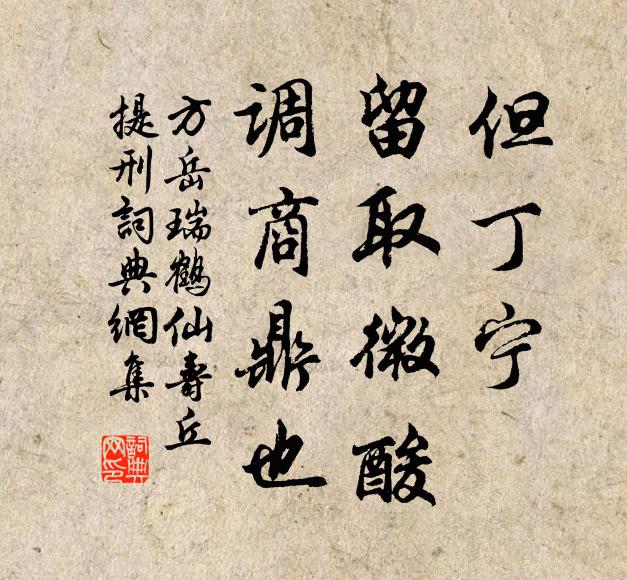 但丁宁
留取微酸
调商鼎也
方岳瑞鹤仙寿丘
提刑詞典網集
詞典
网印